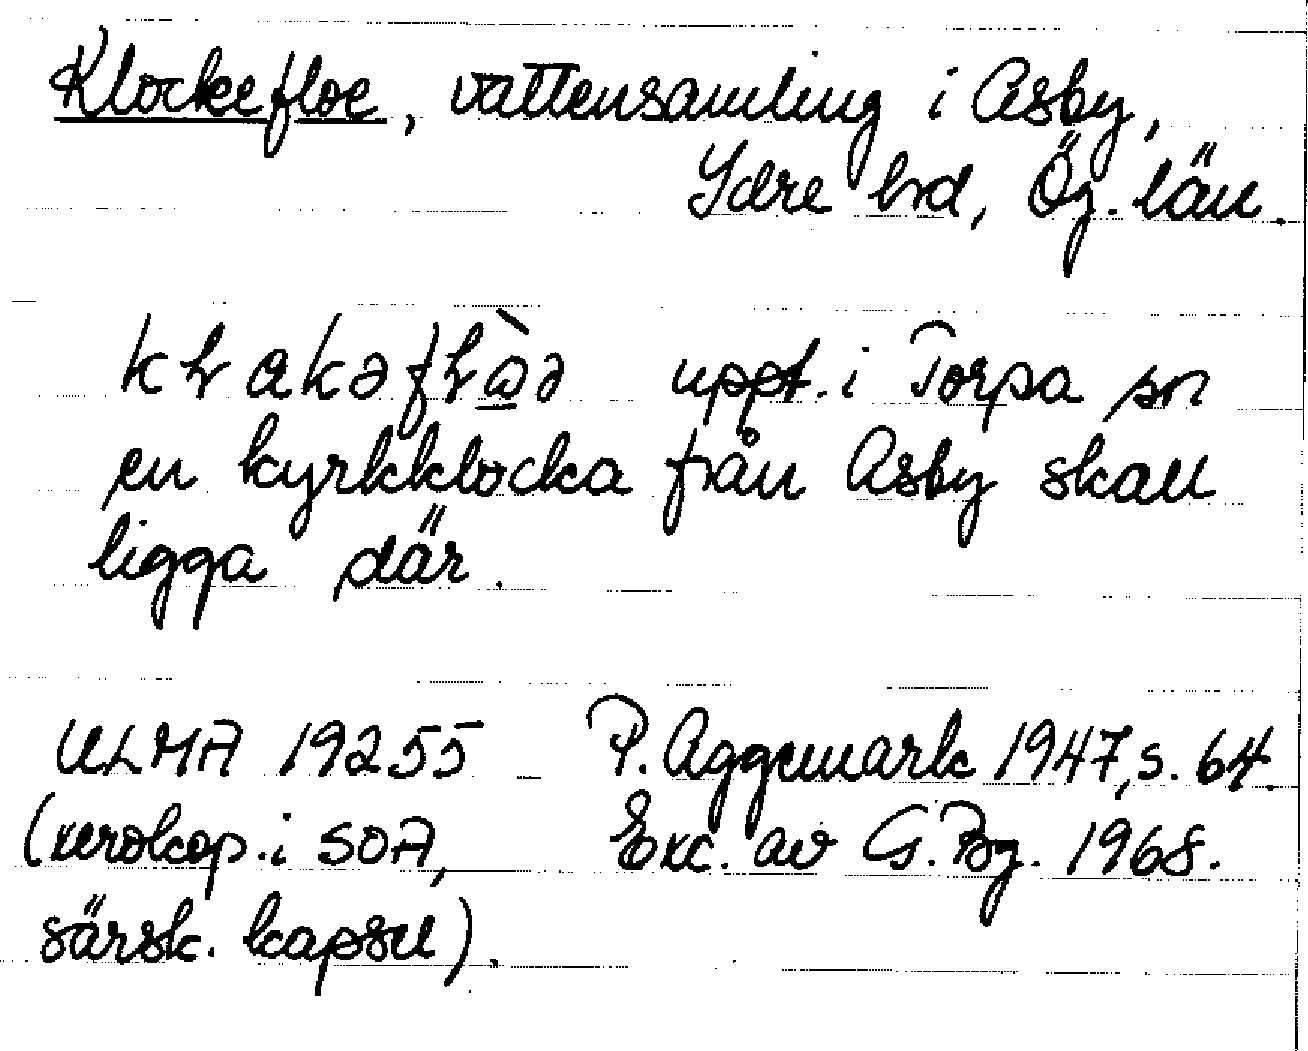 Klockefloe, vattensamling i Asby,
Ydre hd, Ög. län.
uppt. i Torpa sn
en kyrkklocka från Asby skall
ligga där.
ULMA 19255 P. Aggemark 1947, s. 64.
(xerokop. i SOA, Exc. av G. Bg. 1968.
särsk. kapsel).